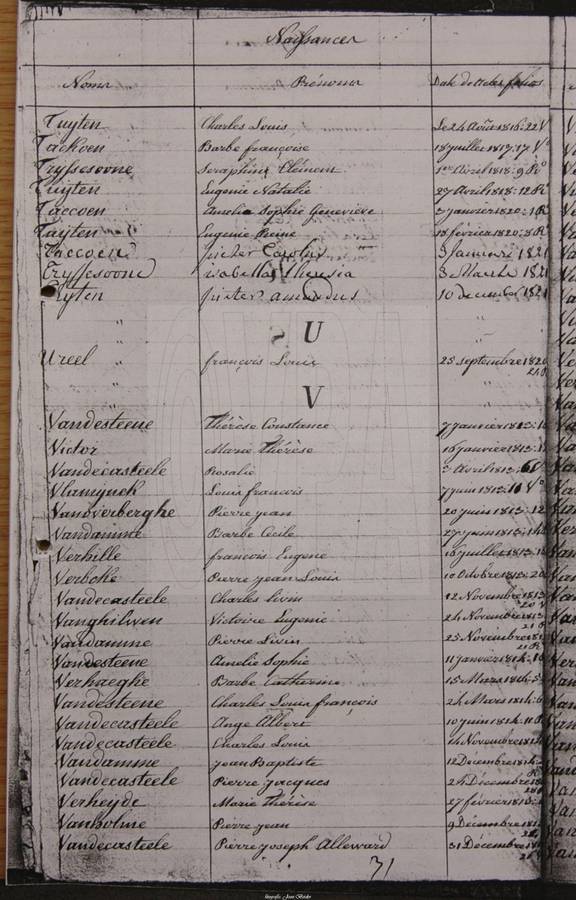 Naissances
Noms Prénoms Date des actes folios
Tuyten Charles Louis Le 24 Août 1816. 22 V°
Tackoen Barbe françoise 18 juillet 1817. 17 V°
Tryssesoone Seraphine Clémein 1er Avril 1818. 9 R°
Tuyten Eugenie Natalie 27 Avril 1818. 12 R°
Taccoen Amelie Sophie Geneviève 3 janvier 1820. 1 R°
Tayten Eugenie Reine 18 février 1820. 8 R°
Taccoen pieter Carolus 3 Januari 1821
Tryssesoone isabella theresia 3 Maarte 1821
Tyten pieter amandus 10 december 1821
" U "
Ureel françois Louis 25 septembre 1820
" V "
Vandesteene Thérèse Constance 7 janvier 1813.
Victor Marie Thérèse 16 janvier 1813.
Vandecasteele Rosalie Avril 1813. 6 V°
Vlamynck Louis francois 7 juin 1813. 11 V°
Vanoverberghe Pierre jean 20 juin 1813. 12
Vandamme Barbe Cécile 27 juin 1813. 14
Verhille francois Eugene juillet 1813.
Verbeke Pierre jean Louis 10 Octobre 1813. 20
Vandecasteele Charles livin 12 Novembre 1813
Vanghilwen Victoire Eugenie 24 Novembre 1813
Vandamme Pierre Livin 25 Novembre
Vandesteene Amelie Sophie 11 janvier 1814.
Verhaeghe Barbe Catherine 15 Mars 1814. 5
Vandesteene Charles Louis françois 24 Mars 1814. 6
Vandecasteele Ange Albert 10 juin 1814. 11 R°
Vandecasteele Charles Louis 14 Novembre 1814
Vandamme jean Baptiste 12 Décembre 1814
Vandecasteele Pierre jacques 24 Décembre
Verheyde Marie thérèse 27 février 1815.
Vanholme Pierre jean 9 Décembre
Vandecasteele Pierre joseph Alleward 31 Décembre
31